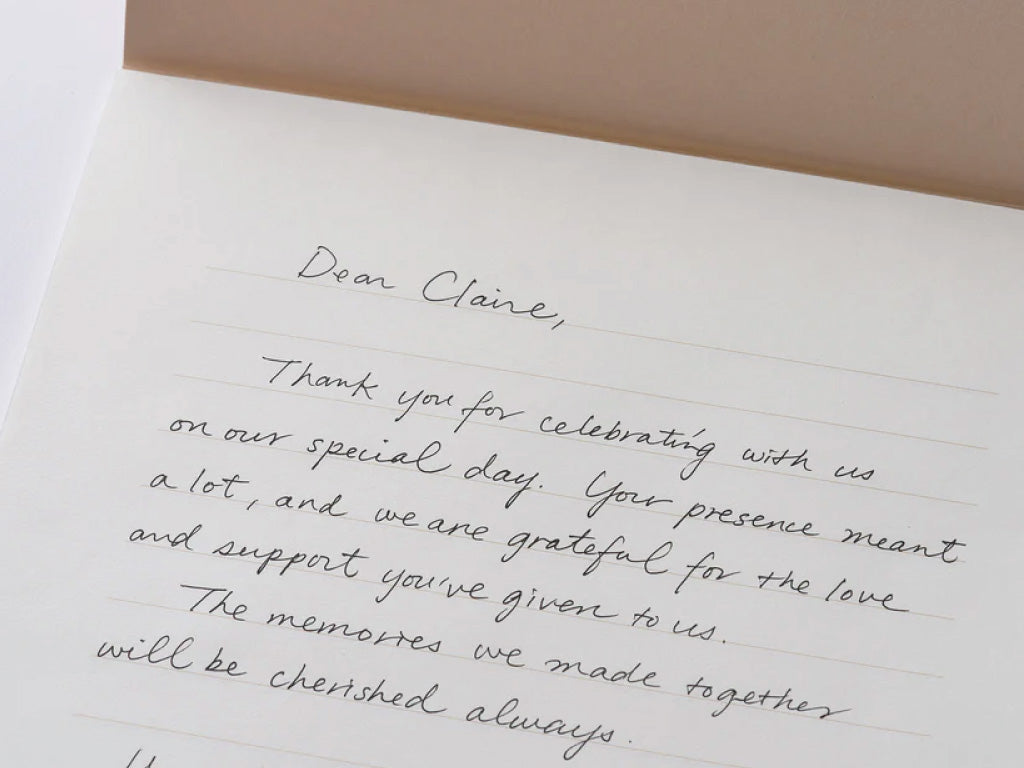 Dear Claire,
Thank you for celebrating with us
on our special day. Your presence meant
a lot, and we are grateful for the love
and support you've given to us.
The memories we made together
will be cherished always.